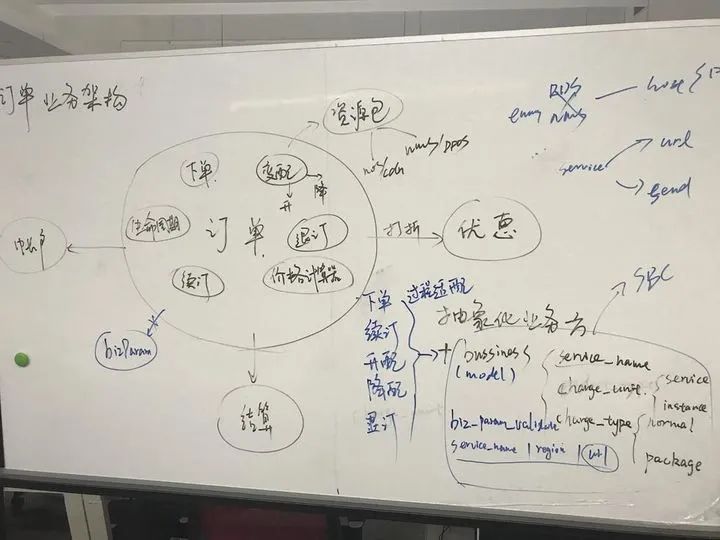 订单业务架构
资源包
nos/cdn
nws/DDOS
下单
变配
升
降
生命周期
订单
退订
续订
价格计算器
打折
优惠
bizParam
结算
RDS
enum
nws
service
url
send
下单
过程适配
续订
升配
降配
退订
抽象化业务方
SBC
+ bussiness
(model)
service_name
charge_unit
service
instance
charge_type
normal
package
biz_param_validate
service_name | region | url